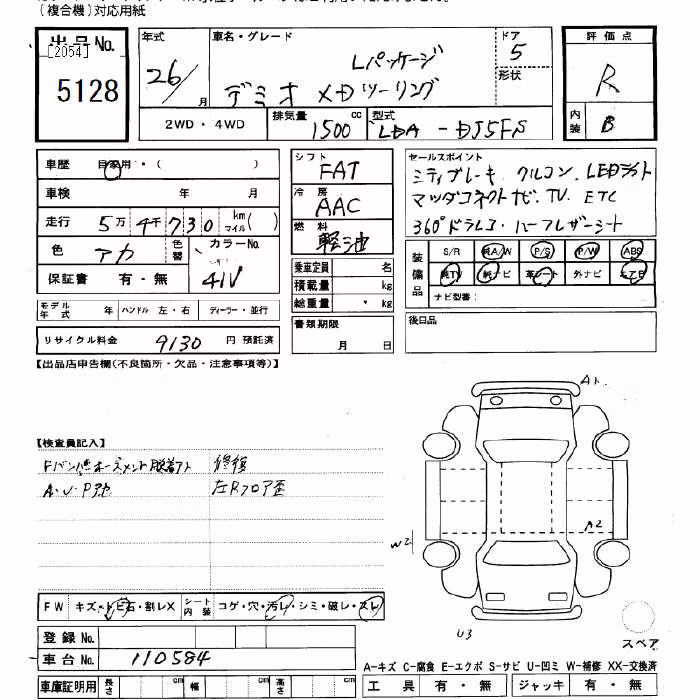 (複合機)対応用紙
出品No.
[2054]
5128
年式
26/ 月
車名・グレード
Lパッケージ
デミオ XDツーリング
ドア
5
形状
評価点
R
内装
B
2WD・4WD
排気量
1500 cc
型式
LDA-DJ5FS
車歴 自家用・( )
車検 年 月
走行 5万4千730 km マイル( )
色 アカ 色替
カラーNo.
41V
保証書 有・無
モデル年式 年 ハンドル 左・右 ディーラー・並行
リサイクル料金 9130 円 預託済
シフト
FAT
冷房
AAC
燃料
軽油
乗車定員 名
積載量 kg
総重量 kg
書類期限
月 日
セールスポイント
シティブレーキ. クルコン. LEDライト
マツダコネクトナビ. TV. ETC
360°ドラレコ・ハーフレザーシート
装備品
S/R 純A/W P/S P/W ABS
純TV 純ナビ 革シート 外ナビ エアB
ナビ型番:
後日品
【出品店申告欄(不良箇所・欠品・注意事項等)】
【検査員記入】
修復
A・U・P
左Rフロア歪
A1
A2
W2
U3
スペア
FW キズ・トビ石・割レX
シート内装 コゲ・穴・汚レ・シミ・破レ・スレ
登録No.
車台No. 110584
車庫証明用 長さ cm 幅 cm 高さ cm
A-キズ C-腐食 E-エクボ S-サビ U-凹ミ W-補修 XX-交換済
工具 有・無 ジャッキ 有・無